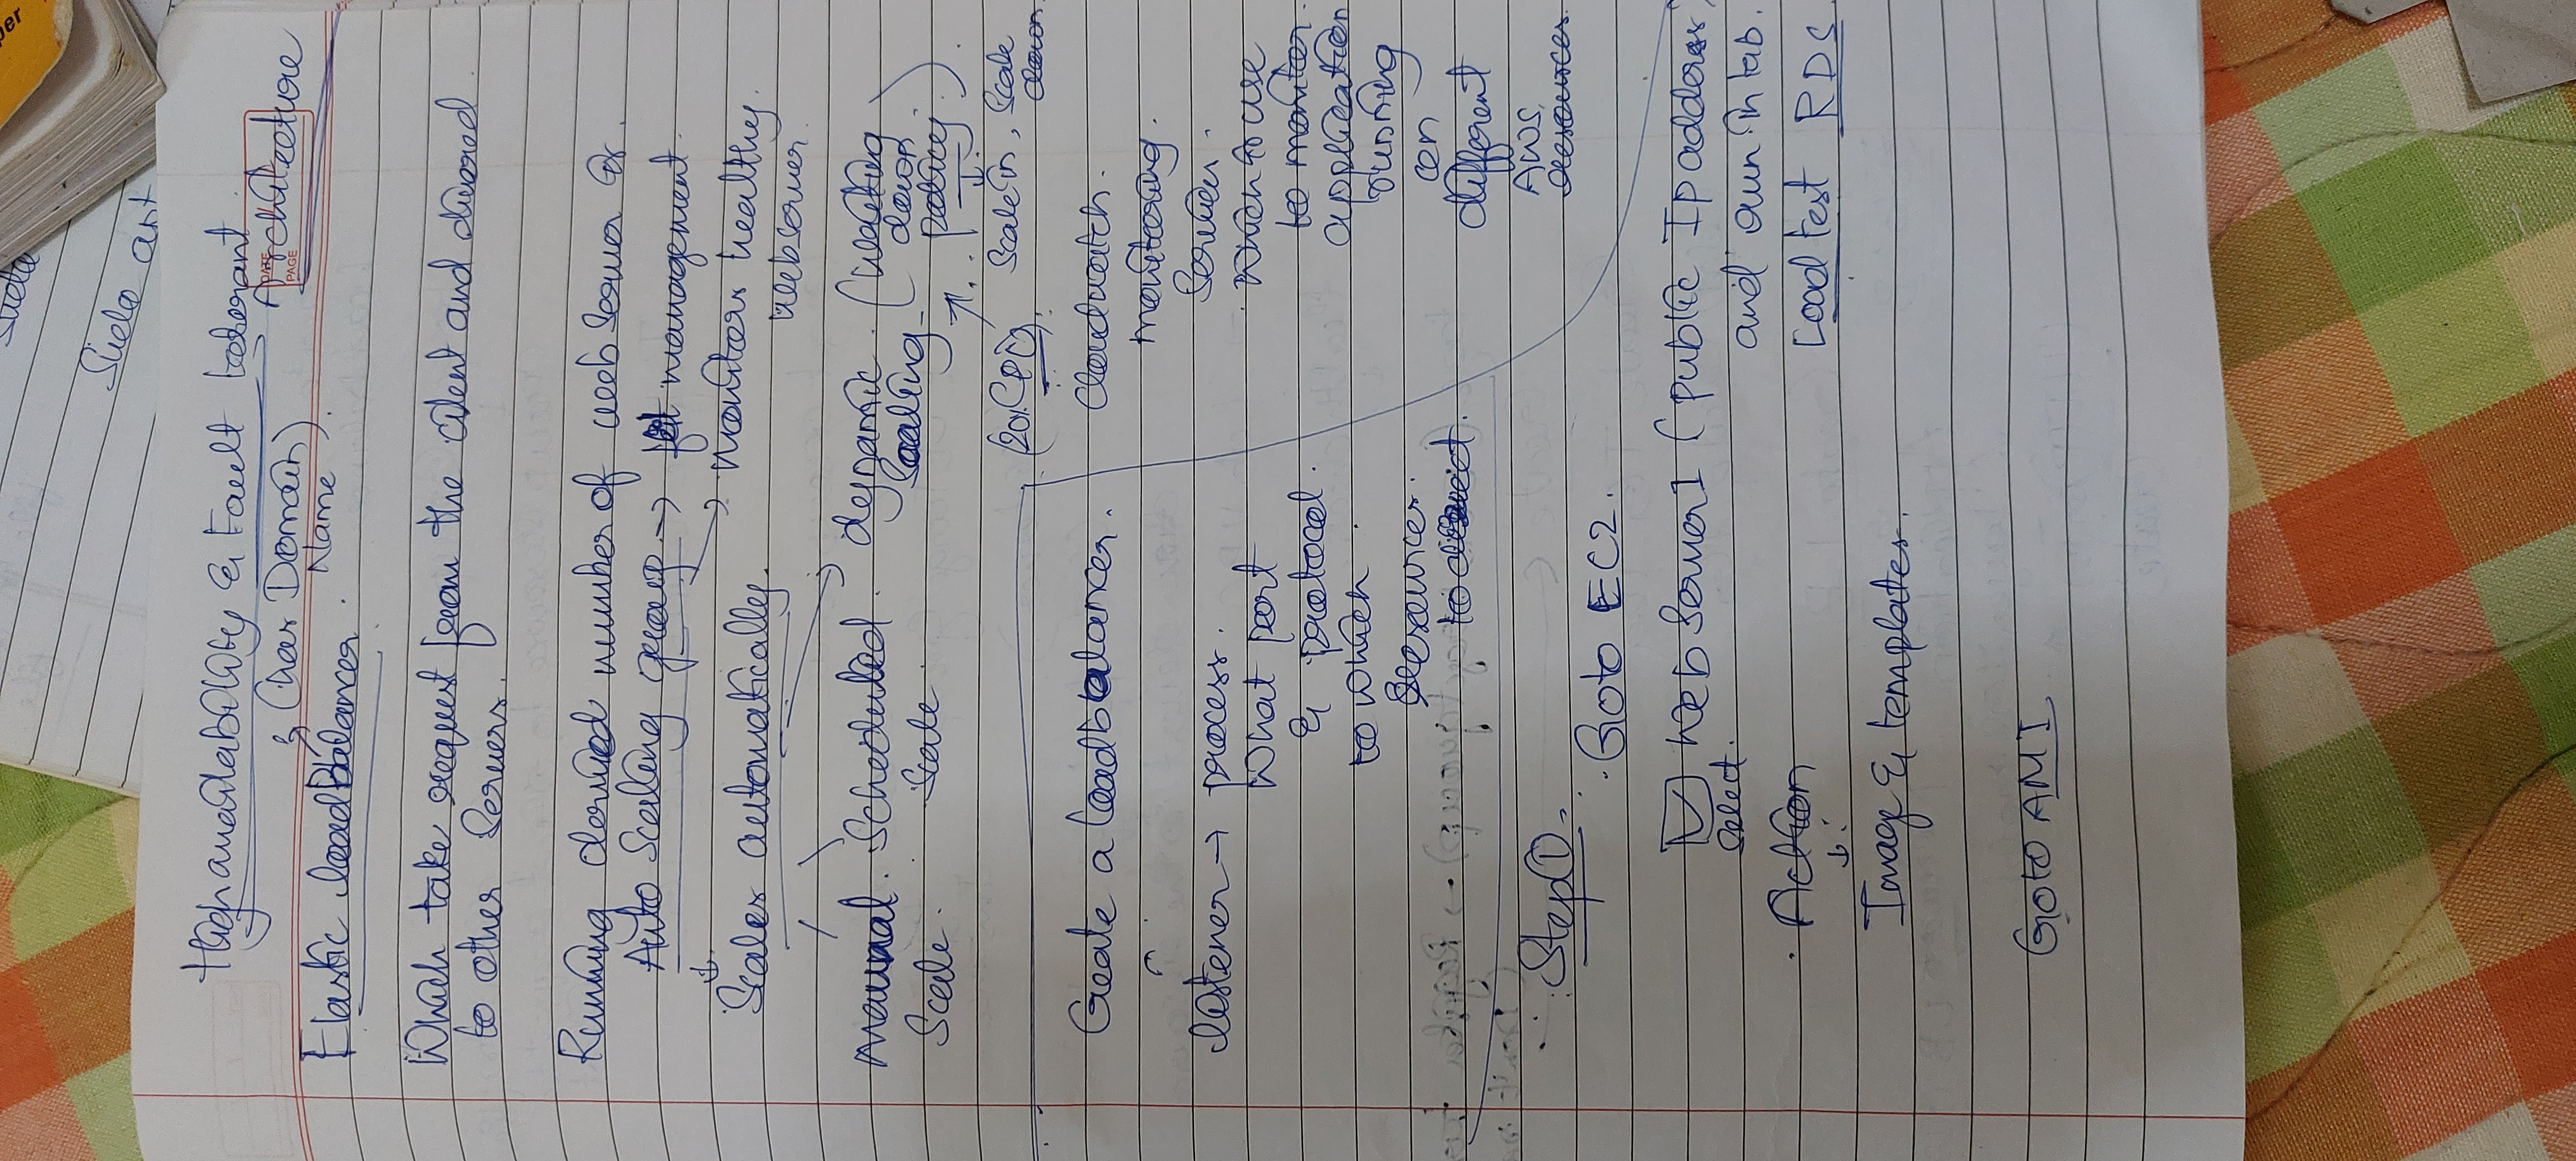 Sudo apt
High availability & Fault tolerant
Architecture
DATE
PAGE
(has Domain
Name).
Elastic load Balancer.
Which take request from the client and divered
to other Servers.
Running desired number of web server or
Auto Scaling group → management
→ Monitors healthy
webserver.
Scales automatically.
Manual. Scheduled. dynamic
Scale. Scale scaling
down
policy
Scale in, Scale
down
Create a load balancer.
listener → process.
What port
& protocol.
to which
Resources.
to direct.
Cloudwatch.
monitoring.
Service.
Which to use
to monitor
application
running
on
different
AWS
Resources
Step ①
Goto EC2.
Web Server 1 (public Ip address)
Select.
and run in tab.
Action
Load test RDS
Image & templates.
Goto AMI